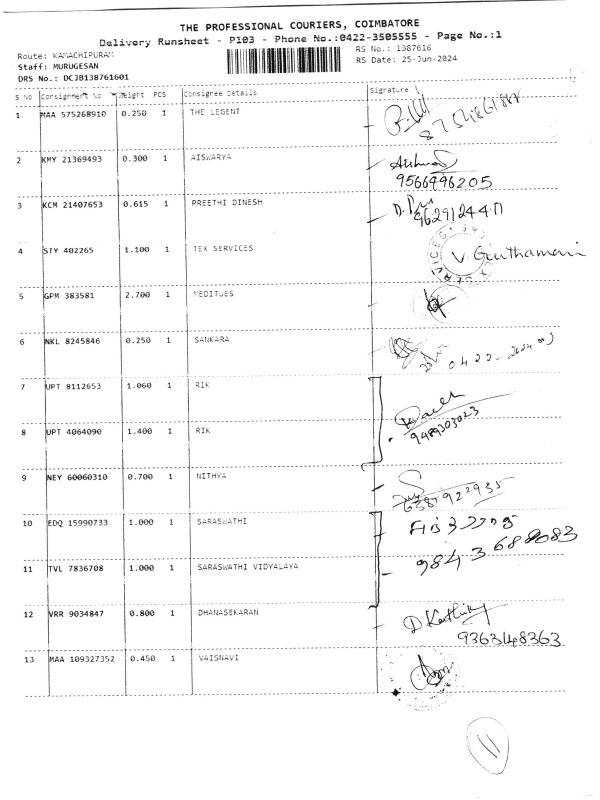 THE PROFESSIONAL COURIERS, COIMBATORE
Delivery Runsheet - P103 - Phone No.:0422-3505555 - Page No.:1
Route: KAMACHIPURAM
RS No.: 1387616
Staff: MURUGESAN
RS Date: 25-Jun-2024
DRS No.: DCJB138761601
S No Consignment No Weight PCS Consignee Details Signature
1 MAA 575268910 0.250 1 THE LEGENT
2 KMY 21369493 0.300 1 AISWARYA
9566496205
3 KCM 21407653 0.615 1 PREETHI DINESH
4 STY 402265 1.100 1 TEX SERVICES V. Gowthamani
5 GPM 383581 2.700 1 MEDITUES
6 NKL 8245846 0.250 1 SANKARA
7 UPT 8112653 1.060 1 RIK
8 UPT 4064090 1.400 1 RIK
9489303023
9 NEY 60060310 0.700 1 NITHYA
6381922935
10 EDQ 15990733 1.000 1 SARASWATHI
11 TVL 7836708 1.000 1 SARASWATHI VIDYALAYA
12 VRR 9034847 0.800 1 DHANASEKARAN D Karthik
9363148363
13 MAA 109327352 0.450 1 VAISNAVI
11